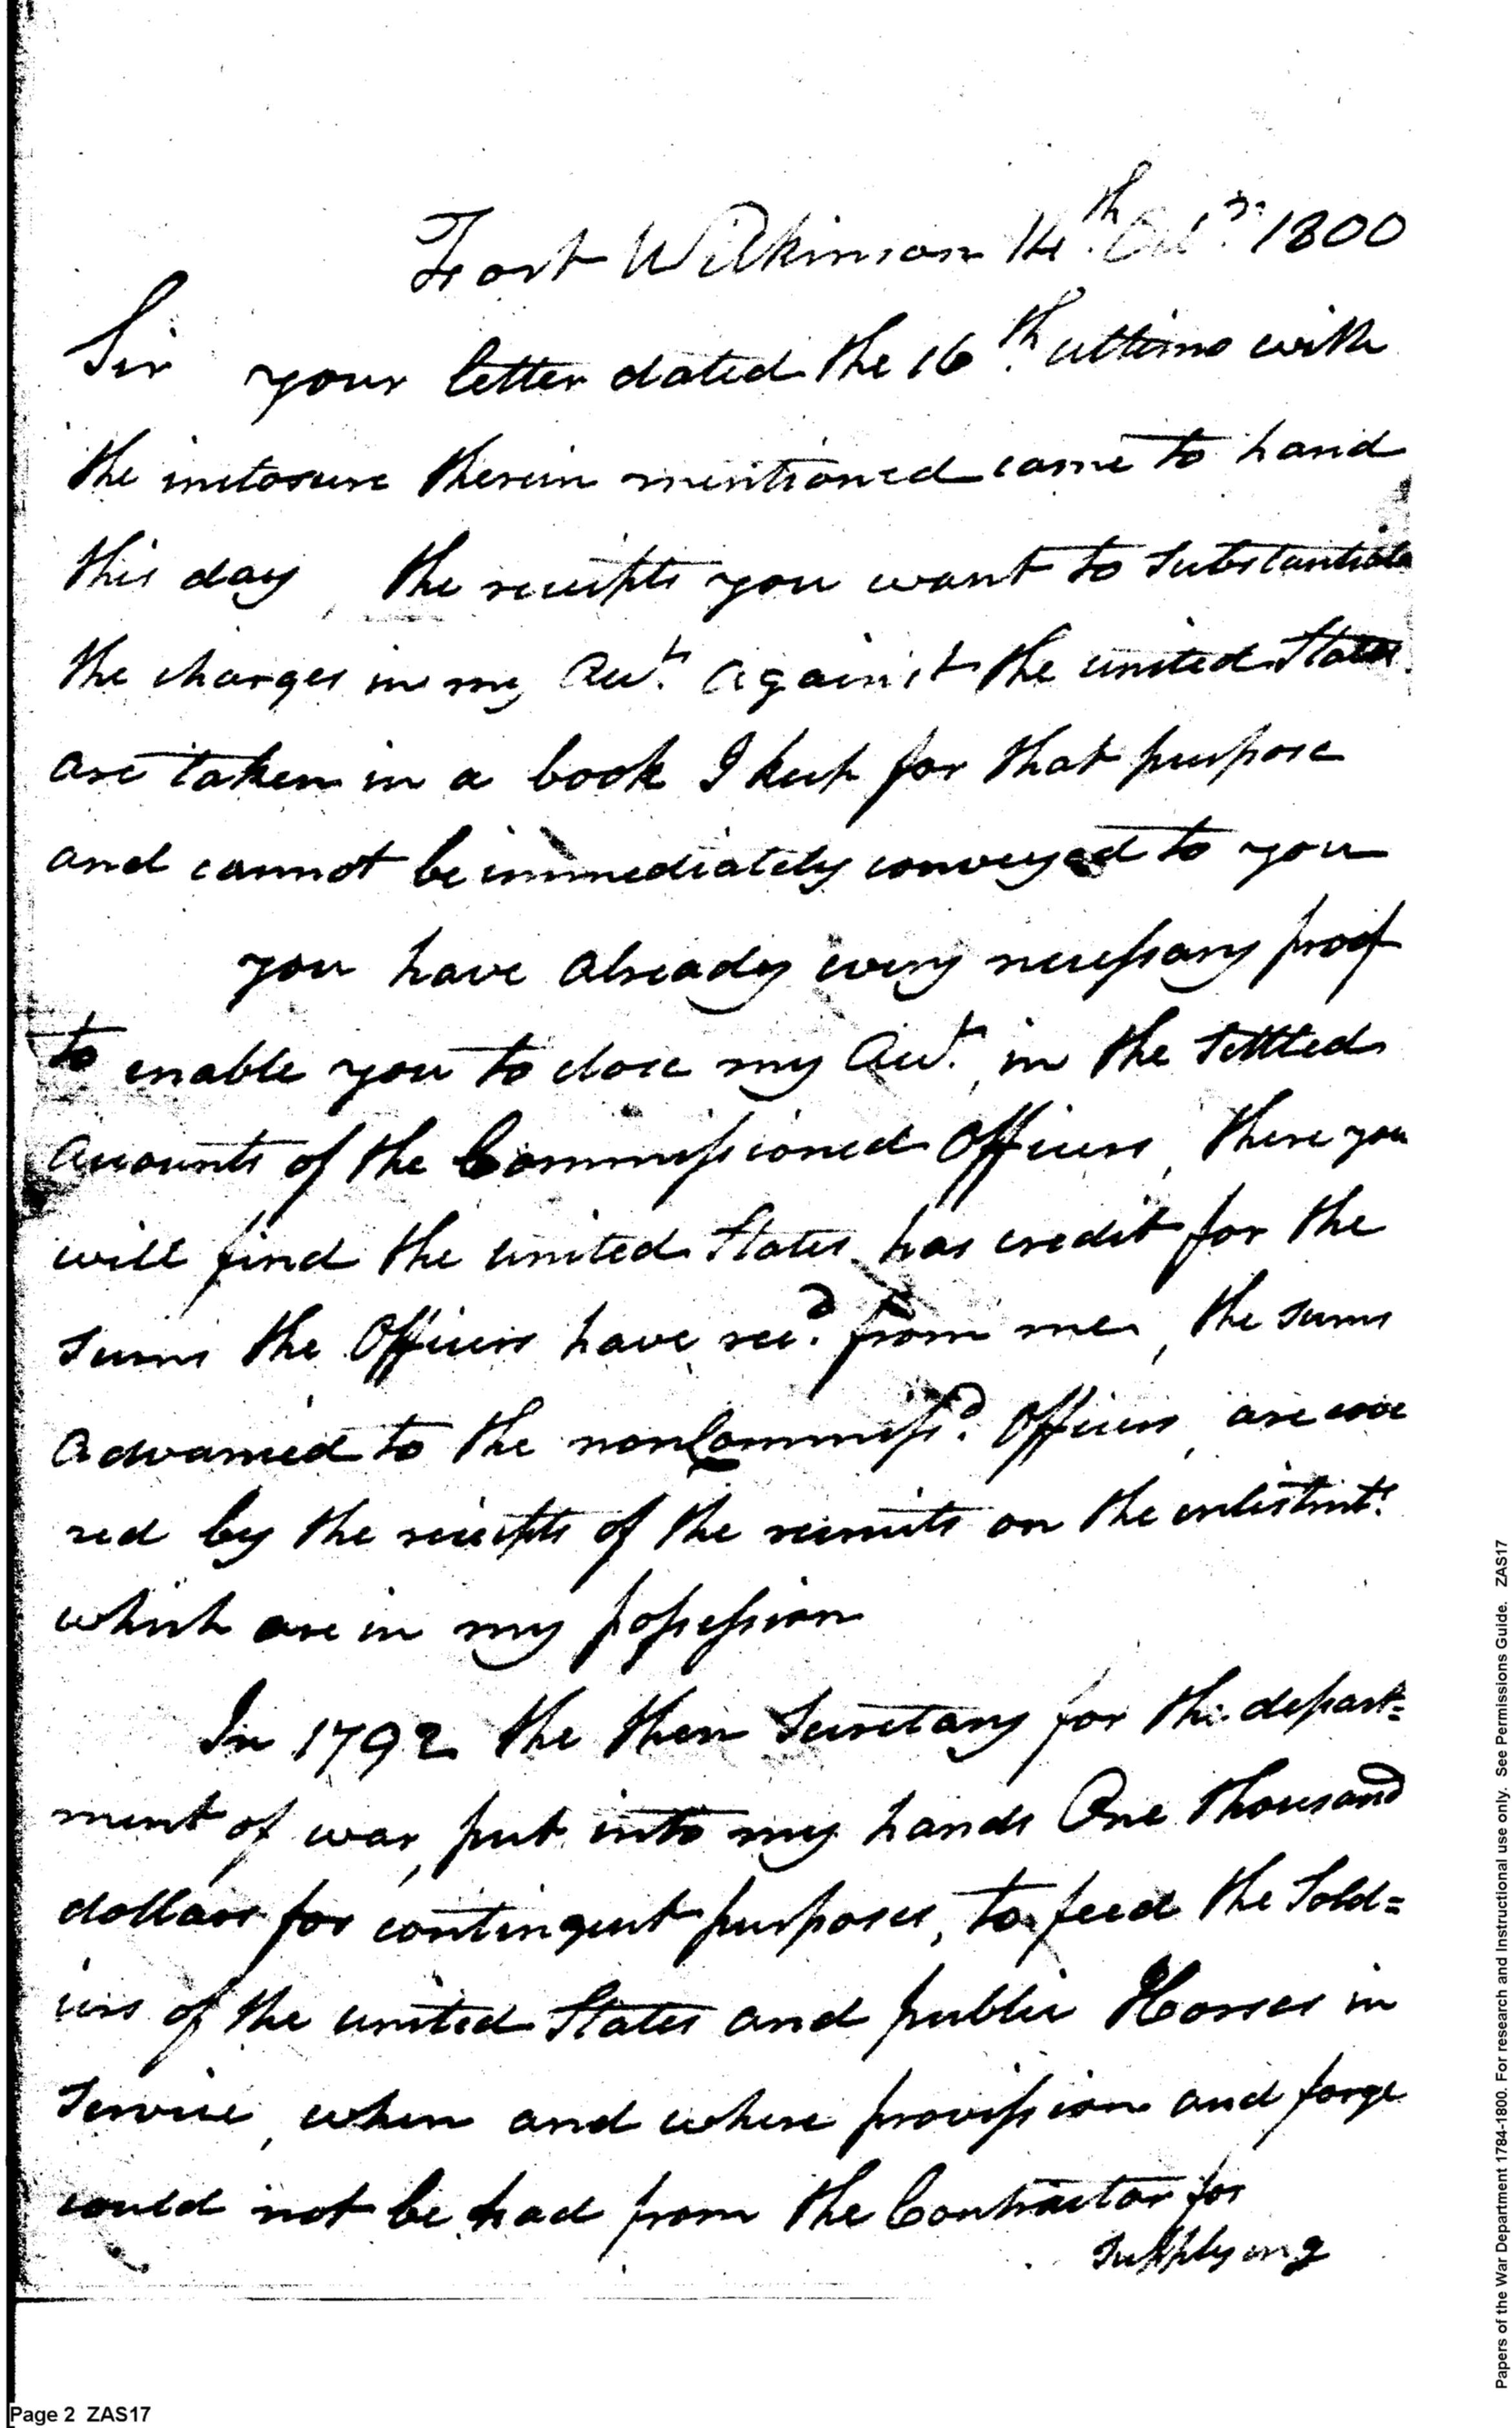 Fort Wilkinson 14th. Octr. 1800
Sir your letter dated the 16th. ultimo with
the inclosure therein mentioned came to hand
this day, the receipts you want to substantiate
the charges in my Acct. against the united States
are taken in a book I keep for that purpose
and cannot be immediately conveyed to you
you have already every necessary proof
to enable you to close my Acct. in the settled
accounts of the Commissioned Officers, there you
will find the united States has credit for the
sums the Officers have recd. from me, the sums
advanced to the nonCommissd. Officers, are cove
red by the receipts of the recruits on the enlistmts.
which are in my possession
In 1792 the then Secretary for the depart=
ment of war, put into my hands One thousand
dollars for contingent purposes, to feed the Sold=
iers of the united States and public Horses in
service, when and where provission and forge
could not be had from the Contractor for
supplying
Page 2 ZAS17
Papers of the War Department 1784-1800. For research and Instructional use only. See Permissions Guide. ZAS17